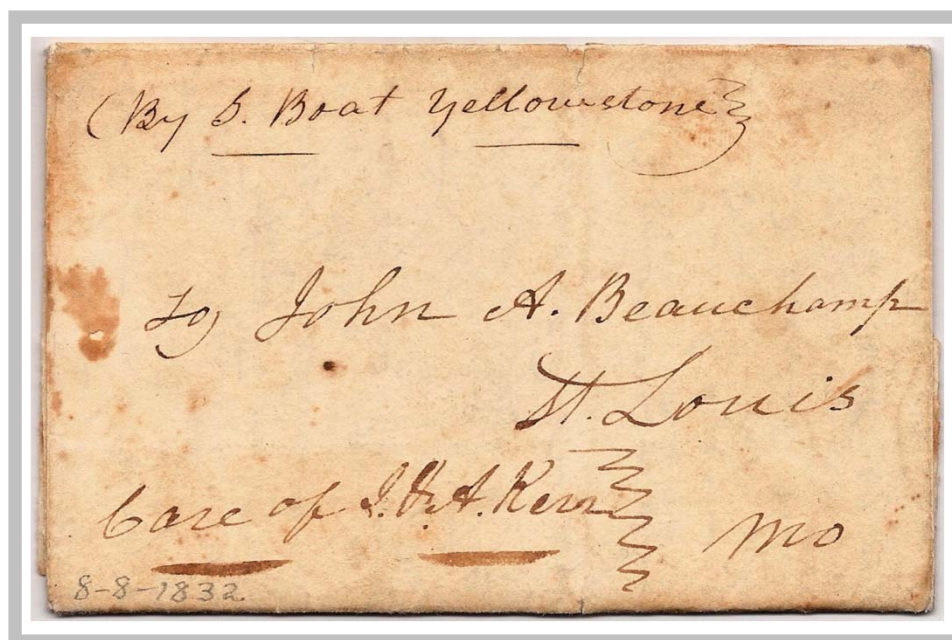 (By S. Boat Yellowstone
To John A. Beauchamp
St. Louis
Care of J. & A. Kerr
Mo
8-8-1832